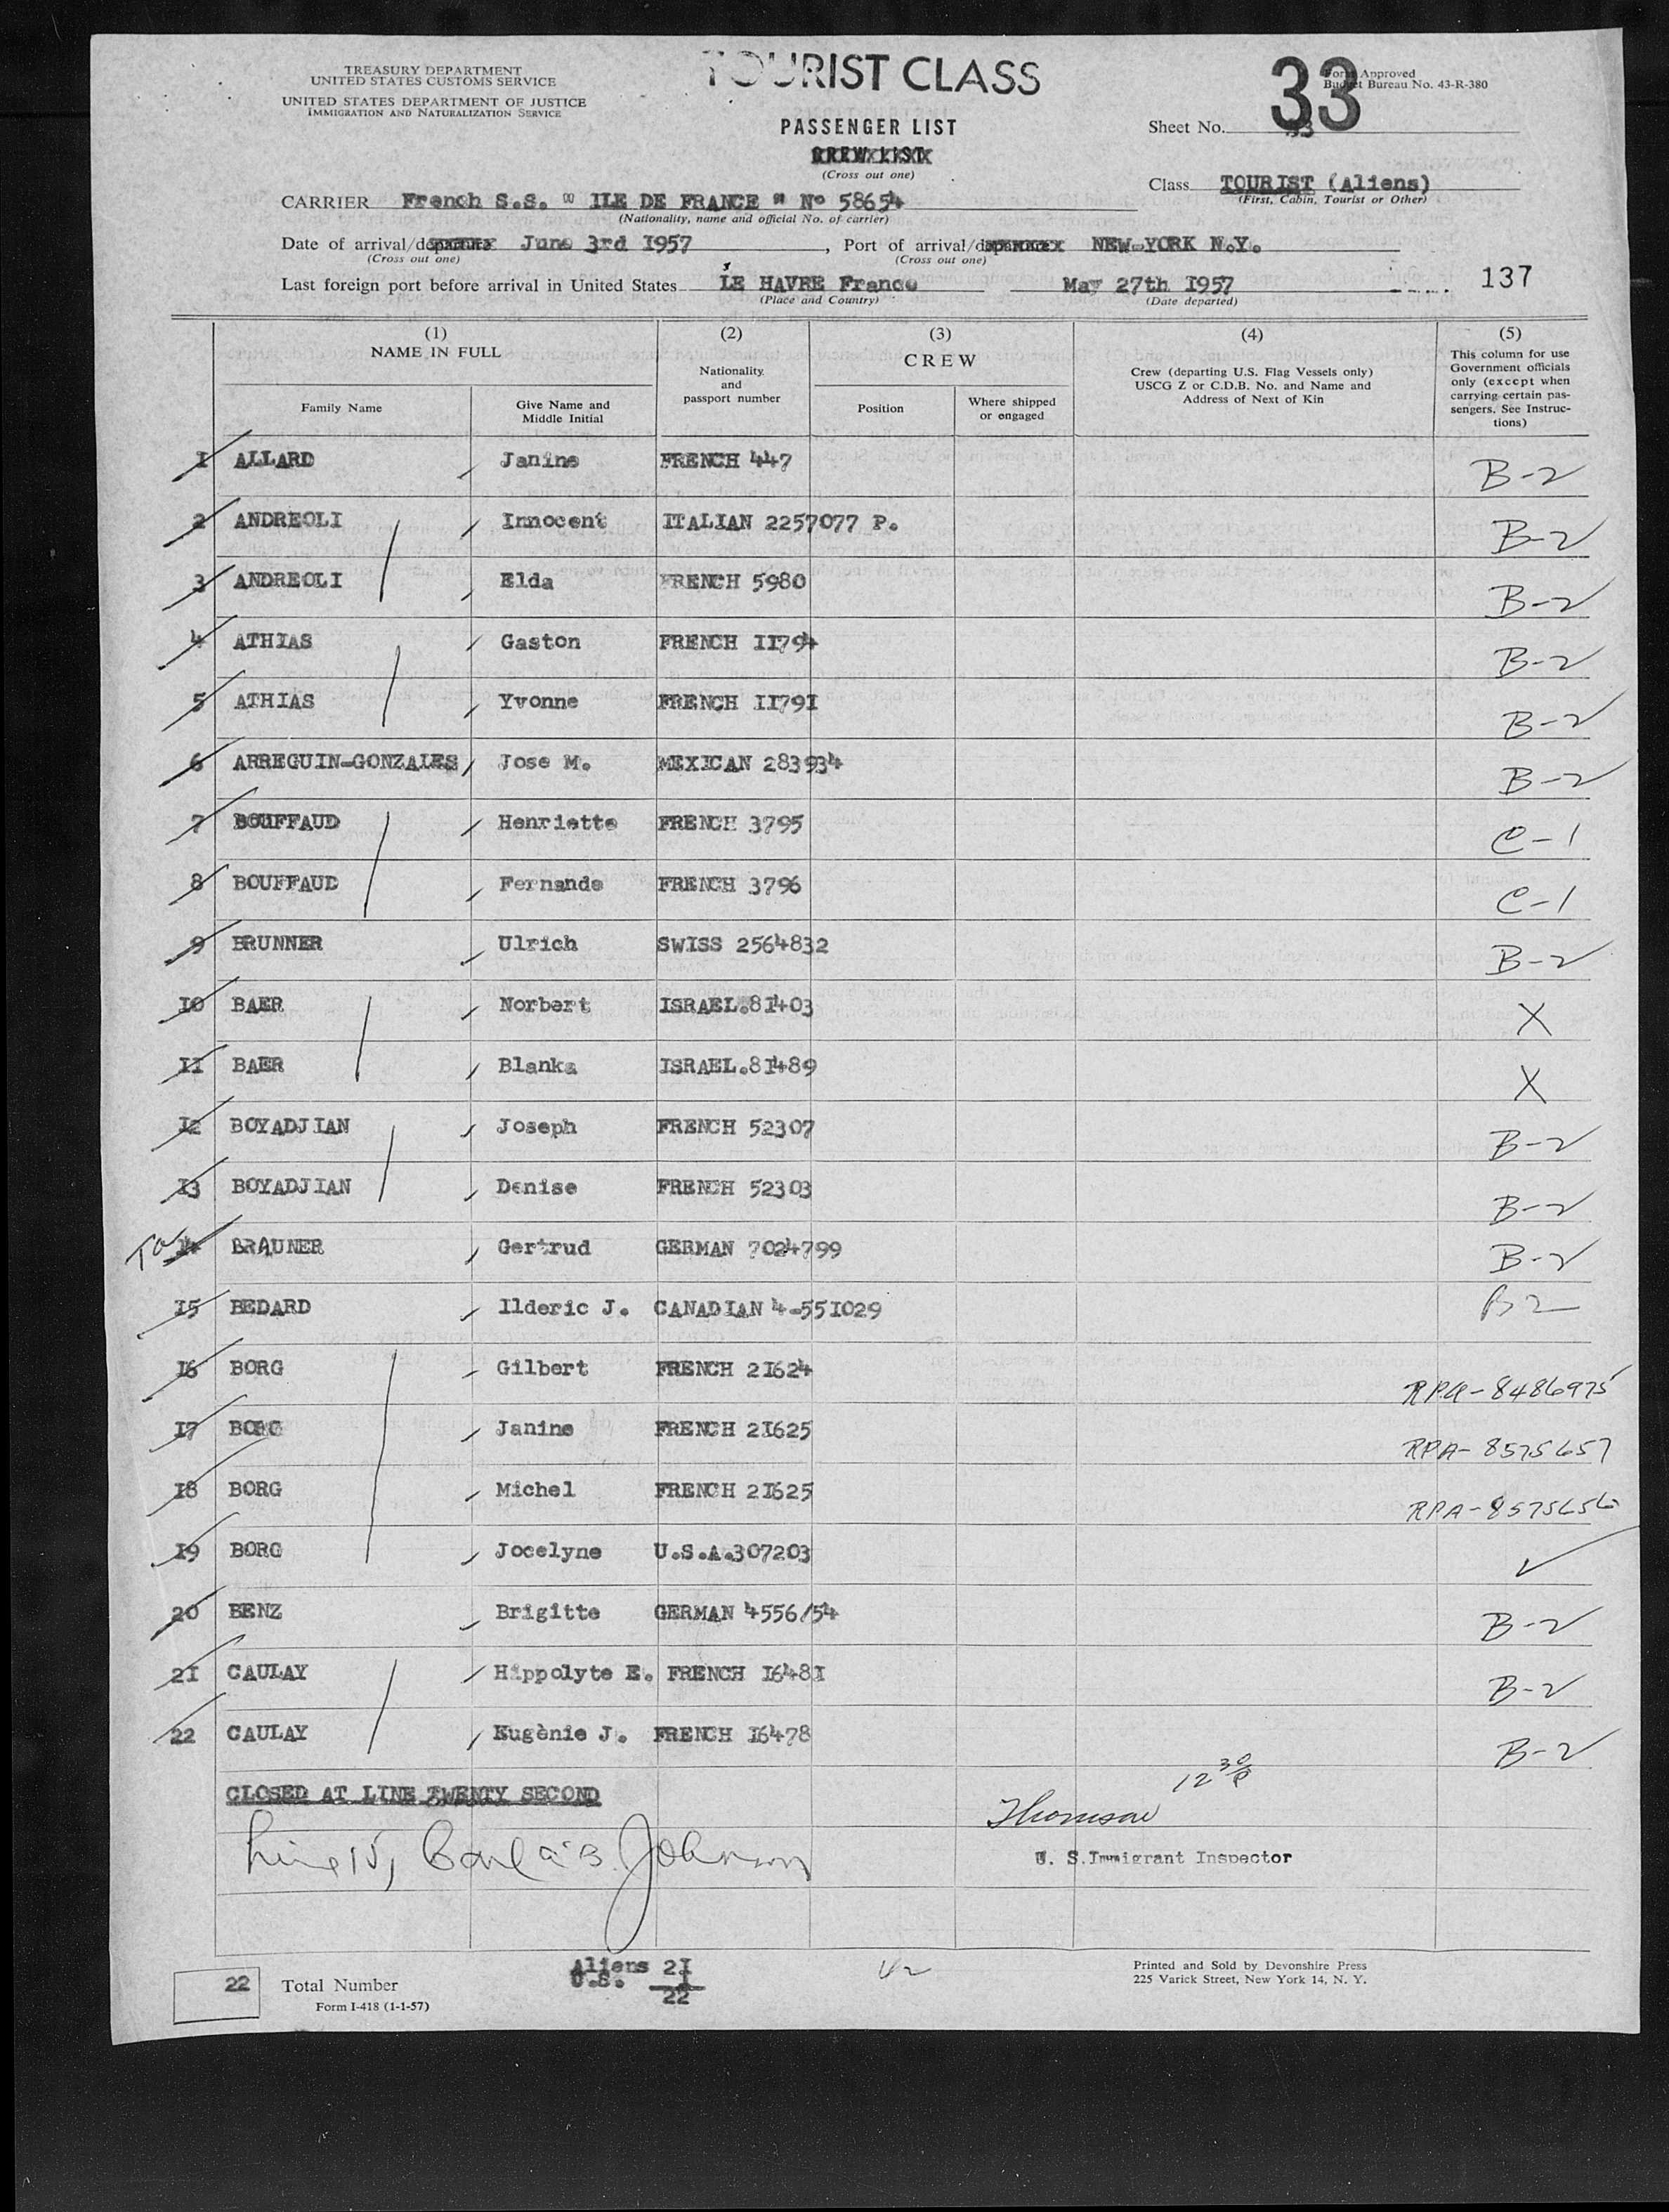 TREASURY DEPARTMENT
UNITED STATES CUSTOMS SERVICE
UNITED STATES DEPARTMENT OF JUSTICE
IMMIGRATION AND NATURALIZATION SERVICE
TOURIST CLASS
PASSENGER LIST
CREW LIST
(Cross out one)
33
Form Approved
Budget Bureau No. 43-R-380
Sheet No. 33
Class TOURIST (Aliens)
(First, Cabin, Tourist or Other)
CARRIER French S.S. " ILE DE FRANCE " N° 58654
(Nationality, name and official No. of carrier)
Date of arrival/departure June 3rd I957, Port of arrival/departure NEW-YORK N.Y.
(Cross out one) (Cross out one)
Last foreign port before arrival in United States LE HAVRE France May 27th I957
(Place and Country) (Date departed)
137
(1) (2) (3) (4) (5)
NAME IN FULL
Family Name
Give Name and Middle Initial
Nationality and passport number
CREW
Position
Where shipped or engaged
Crew (departing U.S. Flag Vessels only)
USCG Z or C.D.B. No. and Name and
Address of Next of Kin
This column for use
Government officials
only (except when
carrying certain pas-
sengers. See Instruc-
tions)
I ALLARD Janine FRENCH 447 B-2
2 ANDREOLI Innocent ITALIAN 2257077 P. B-2
3 ANDREOLI Elda FRENCH 5980 B-2
4 ATHIAS Gaston FRENCH II794 B-2
5 ATHIAS Yvonne FRENCH II79I B-2
6 ARREGUIN-GONZALES Jose M. MEXICAN 283934 B-2
7 BOUFFAUD Henriette FRENCH 3795 C-1
8 BOUFFAUD Fernande FRENCH 3796 C-1
9 BRUNNER Ulrich SWISS 2564832 B-2
I0 BAER Norbert ISRAEL.8I403 X
II BAER Blanka ISRAEL.8I489 X
I2 BOYADJIAN Joseph FRENCH 52307 B-2
I3 BOYADJIAN Denise FRENCH 52303 B-2
I4 BRAUNER Gertrud GERMAN 7024799 B-2
I5 BEDARD Ilderic J. CANADIAN 4-55I029 B2
I6 BORG Gilbert FRENCH 2I624 RPA-8486975
I7 BORG Janine FRENCH 2I625 RPA-8575657
I8 BORG Michel FRENCH 2I625 RPA-8575656
I9 BORG Jocelyne U.S.A.307203 ✓
20 BENZ Brigitte GERMAN 4556/54 B-2
2I CAULAY Hippolyte E. FRENCH I648I B-2
22 CAULAY Eugènie J. FRENCH I6478 B-2
CLOSED AT LINE TWENTY SECOND
12 30 P
Thomson
Line 15, Johnson
U. S. Immigrant Inspector
22 Total Number
Form I-418 (1-1-57)
Aliens 2I
U.S. I
22
Printed and Sold by Devonshire Press
225 Varick Street, New York 14, N. Y.